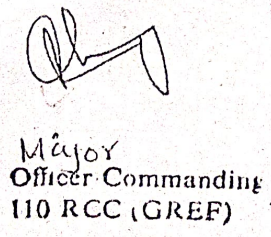 Major
Officer Commanding
110 RCC (GREF)